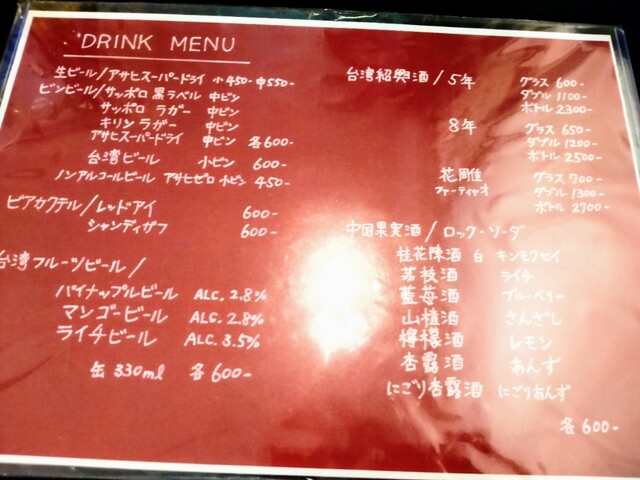 DRINK MENU
生ビール/アサヒスーパードライ 小450- 中550-
ビンビール/サッポロ黒ラベル 中ビン
サッポロ ラガー 中ビン
キリン ラガー 中ビン
アサヒスーパードライ 中ビン 各600-
台湾ビール 小ビン 600-
ノンアルコールビール アサヒゼロ 小ビン 450-
ビアカクテル/レッドアイ 600-
シャンディガフ 600-
台湾フルーツビール/
パイナップルビール ALC. 2.8%
マンゴービール ALC. 2.8%
ライチビール ALC. 3.5%
缶 330ml 各600-
台湾紹興酒/5年 グラス 600-
ダブル 1100-
ボトル 2300-
8年 グラス 650-
ダブル 1200-
ボトル 2500-
花雕 グラス 700-
ファーティヤオ ダブル 1300-
ボトル 2700-
中国果実酒/ロック・ソーダ
桂花陳酒 白 キンモクセイ
荔枝酒 ライチ
藍苺酒 ブルーベリー
山植酒 さんざし
檸檬酒 レモン
杏露酒 あんず
にごり杏露酒 にごりあんず
各600-